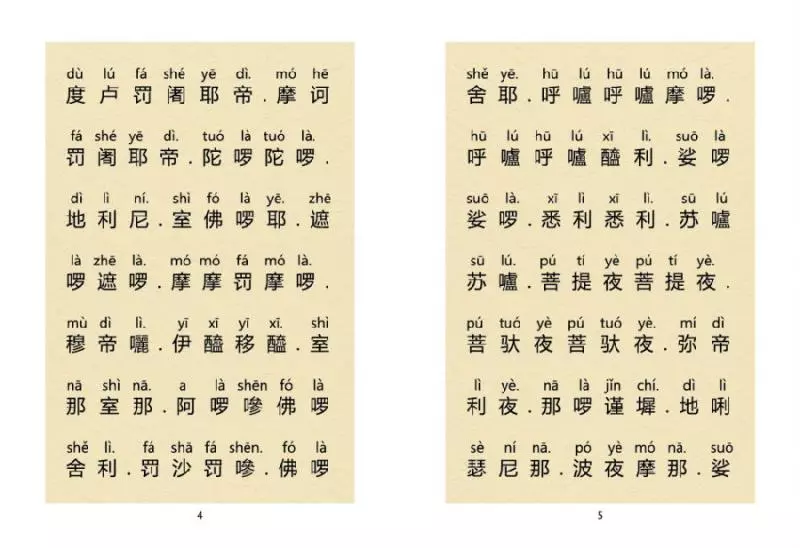 dù lú fá shé yē dì. mó hē
度卢罚阇耶帝.摩诃
fá shé yē dì. tuó là tuó là.
罚阇耶帝.陀啰陀啰.
dì lì ní. shì fó là yē. zhē
地利尼.室佛啰耶.遮
là zhē là. mó mó fá mó là.
啰遮啰.摩摩罚摩啰.
mù dì lì. yī xī yī xī. shì
穆帝囇.伊醯移醯.室
nā shì nā. a là shēn fó là
那室那.阿啰嘇佛啰
shě lì. fá shā fá shēn. fó là
舍利.罚沙罚嘇.佛啰
4
shě yē. hū lú hū lú mó là.
舍耶.呼嚧呼嚧摩啰.
hū lú hū lú xī lì. suō là
呼嚧呼嚧醯利.娑啰
suō là. xī lì xī lì. sū lú
娑啰.悉利悉利.苏嚧
sū lú. pú tí yè pú tí yè.
苏嚧.菩提夜菩提夜.
pú tuó yè pú tuó yè. mí dì
菩驮夜菩驮夜.弥帝
lì yè. nā là jǐn chí. dì lì
利夜.那啰谨墀.地唎
sè ní nā. pó yè mó nā. suō
瑟尼那.波夜摩那.娑
5